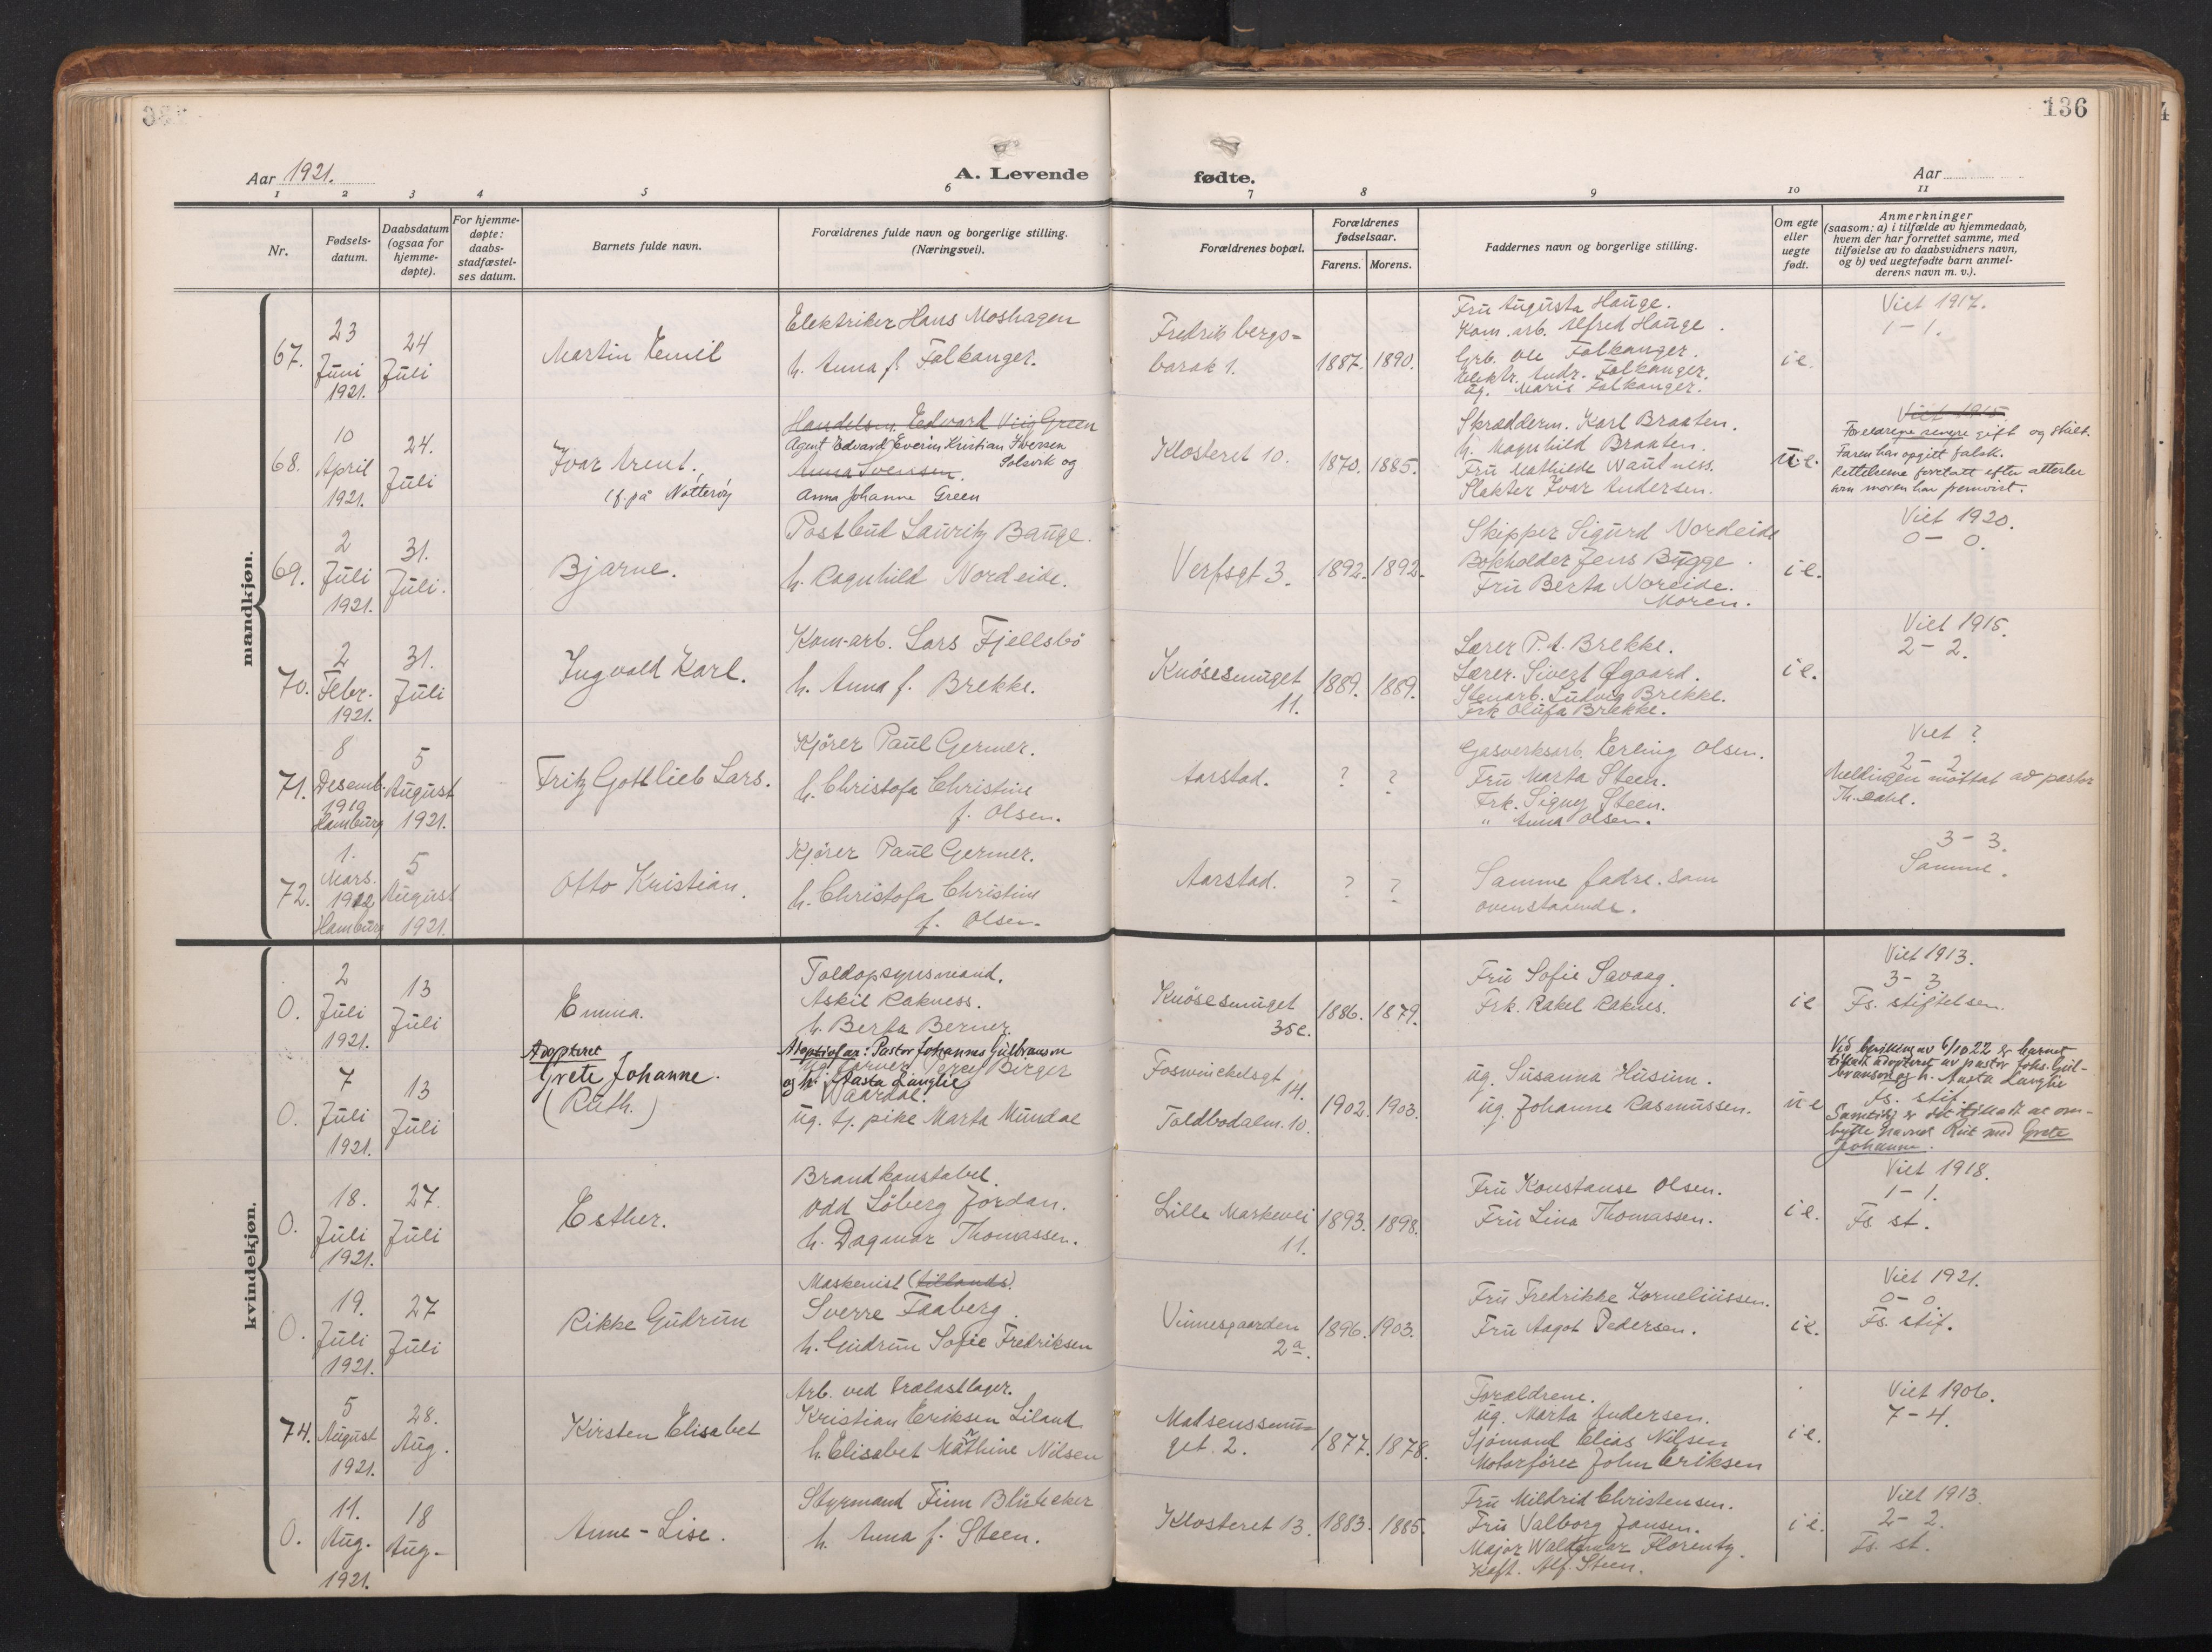 136
Aar 1921.
A. Levende
fødte.
Aar
1 2 3 4 5 6 7 8 9 10 11
Nr.
Fødsels-
datum.
Daabsdatum
(ogsaa for
hjemme-
døpte).
For hjemme-
døpte:
daabs-
stadfæstel-
ses datum.
Barnets fulde navn.
Forældrenes fulde navn og borgerlige stilling.
(Næringsvei).
Forældrenes bopæl.
Forældrenes
fødselsaar.
Farens. Morens.
Faddernes navn og borgerlige stilling.
Om egte
eller
uegte
født.
Anmerkninger
(saasom: a) i tilfælde av hjemmedaab,
hvem der har forrettet samme, med
tilføielse av to daabsvidners navn,
og b) ved uegtefødte barn anmel-
derens navn m. v.).
mandkjøn.
67.
23
Juni
1921.
24
Juli
Martin Emil
Elektriker Hans Moshagen
h. Anna f. Falkanger.
Fredriksbergs=
barak 1.
1887. 1890.
Fru Augusta Hauge.
Kom. arb. Alfred Hauge.
Grb. Ole Falkanger.
Elektr. Andr. Falkanger.
Ug. Maris Falkanger.
i e.
Viet 1917.
1 - 1.
68.
10
April
1921.
24.
Juli
Ivar Arent.
(f. på Nøtterøy
Handelsm. Edvard Viig Green
Agent Edvard Everin Kristian Iversen
Solsvik og
Anna Svensen.
Anna Johanne Green
Klosteret 10.
1870. 1885.
Skrædderm. Karl Braaten.
h. Magnhild Braaten.
Fru Mathilde Wautness.
Slakter Ivar Andersen.
u. e.
Viet 1915
Foreldrene senere gift og skilt.
Faren har opgitt falsk.
Rettelserne foretatt efter attester
som moren har fremvist.
69.
2
Juli
1921.
31.
Juli.
Bjarne.
Postbud Lauritz Bauge.
h. Ragnhild Nordeide.
Verfsgt 3.
1892. 1892.
Skipper Sigurd Nordeide
Bokholder Jens Bugge.
Fru Berta Noreide.
Moren.
i e.
Viet 1920.
0 - 0.
70.
2
Febr.
1921.
31.
Juli
Ingvald Karl.
Kom-arb. Lars Fjellsbö
h. Anna f. Brekke.
Knösesmuget
11.
1889. 1889.
Lærer P. A. Brekke.
Lærer. Sivert Øgaard.
Stenarb. Ludvig Brekke.
Frk Olufa Brekke.
i e.
Viet 1915.
2 - 2.
71.
8
Desemb.
1910
Hamburg
5
August
1921.
Fritz Gottlieb Lars.
Kjører Paul Germer.
h. Christofa Christine
f. Olsen.
Aarstad.
? ?
Gasverksarb. Erling Olsen.
Fru Marta Steen.
Frk. Signy Steen.
" Anna Olsen.
Viet ?
2 - 2
Meldingen mottat av pastor
Th. Dahl.
72.
1.
Mars.
1912
Hamburg
5
August
1921.
Otto Kristian.
Kjører Paul Germer.
h. Christofa Christine
f. Olsen.
Aarstad.
? ?
Samme fadre. som
ovenstaaende.
3 - 3.
Samme.
kvindekjøn.
0.
2
Juli
1921.
13
Juli
Emma.
Toldopsynsmand.
Askil Raknes.
h. Berta Berner.
Knösesmuget
35c.
1886. 1879.
Fru Sofie Savaag.
Frk. Rakel Raknes.
i e
Viet 1913.
3 - 3
Fs. stiftelsen.
0.
7
Juli
1921.
13
Juli
Adopteret
Grete Johanne.
(Ruth.)
Adoptivfar: Pastor Johannes Gulbranson
Ug. Birger
og h. Aasta Langlie
Vaardal.
ug. tj. pike Marta Mundal
Foswinckelsgt
14.
Toldbodalm. 10.
1902. 1903.
ug. Susanna Husum.
ug. Johanne Rasmussen.
u e
Ved bevilling av 6/10 22 er barnet
tillatt adopteret av pastor Johs. Gul-
branson og h. Aasta Langlie
Fs. stif.
Samtidig er det tillatt at om-
bytte navnet Rut med Grete
Johanne.
0.
18.
Juli
1921.
27.
Juli
Esther.
Brandkonstabel.
Odd Löberg Jordan.
h. Dagmar Thomassen.
Lille Markevei
11.
1893. 1898.
Fru Konstanse Olsen.
Fru Lina Thomassen.
i e.
Viet 1918.
1 - 1.
Fs st.
0.
19.
Juli
1921.
27
Juli
Rikke Gudrun
Maskinist (tillands).
Sverre Faaberg.
h. Gudrun Sofie Fredriksen
Vinnesgaarden
2a.
1896. 1903.
Fru Fredrikke Korneliussen.
Fru Aagot Pedersen.
i e.
Viet 1921.
0 - 0.
Fs. stif.
74.
5
August
1921.
28.
Aug.
Kirsten Elisabet
Arb. ved Trælastlager.
Kristian Eriksen Liland
h. Elisabet Mathine Nilsen
Madsenssmu=
get. 2.
1877. 1878.
Forældrene.
ug. Marta Andersen.
Sjömand Elias Nilsen
Motorförer John Eriksen
i e.
Viet 1906.
7 - 4.
0.
11.
Aug.
1921.
18
Aug-
Anne-Lise.
Styrmand Finn Blütecker
h. Anna f. Steen.
Klosteret 13.
1883. 1885.
Fru Mildrid Christensen.
Fru Valborg Jansen.
Major Waldemar Florentz.
Kaft. Alf. Steen.
i e.
Viet 1913.
2 - 2.
Fs. st.